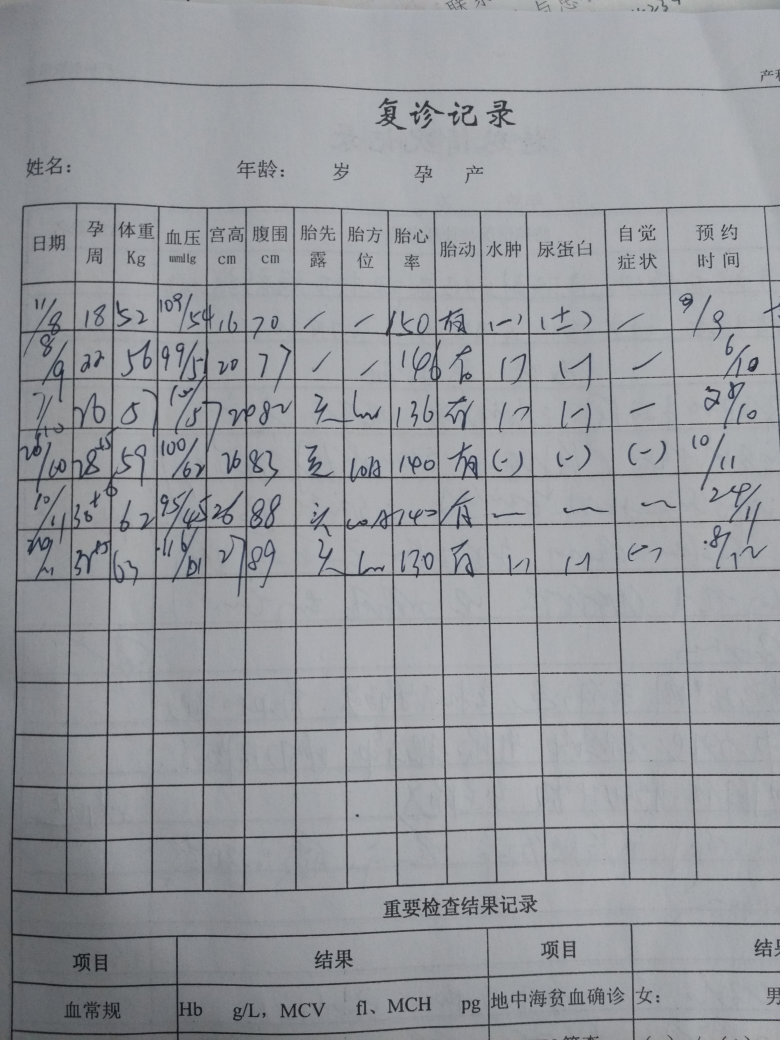 复诊记录
姓名： 年龄： 岁 孕 产
日期 孕周 体重Kg 血压mmHg 宫高cm 腹围cm 胎先露 胎方位 胎心率 胎动 水肿 尿蛋白 自觉症状 预约时间
11/8 18 52 109/54 16 70 / / 150 有 (-) (±) / 9/9
8/9 22 56 99/51 20 77 / / 146 有 (-) (-) — 6/10
26 57 82 头 136 有 (-) (-) —
28+5 59 100/62 26 83 头 LOA 140 有 (-) (-) (-) 10/11
10/11 30+6 62 95/45 26 88 头 LOA 142 有 — — — 24/11
63 27 89 头 130 有 (-) (-) (-) 8/12
重要检查结果记录
项目 结果 项目
血常规 Hb g/L，MCV fl、MCH pg 地中海贫血确诊 女： 男